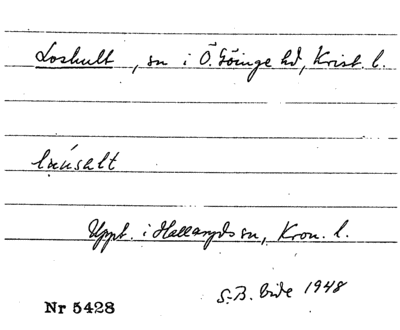 Loshult, sn i Ö. Göinge hd, Krist. l.
Uppt. i Hallaryds sn, Kron. l.
S.B. 1948
Nr 5428